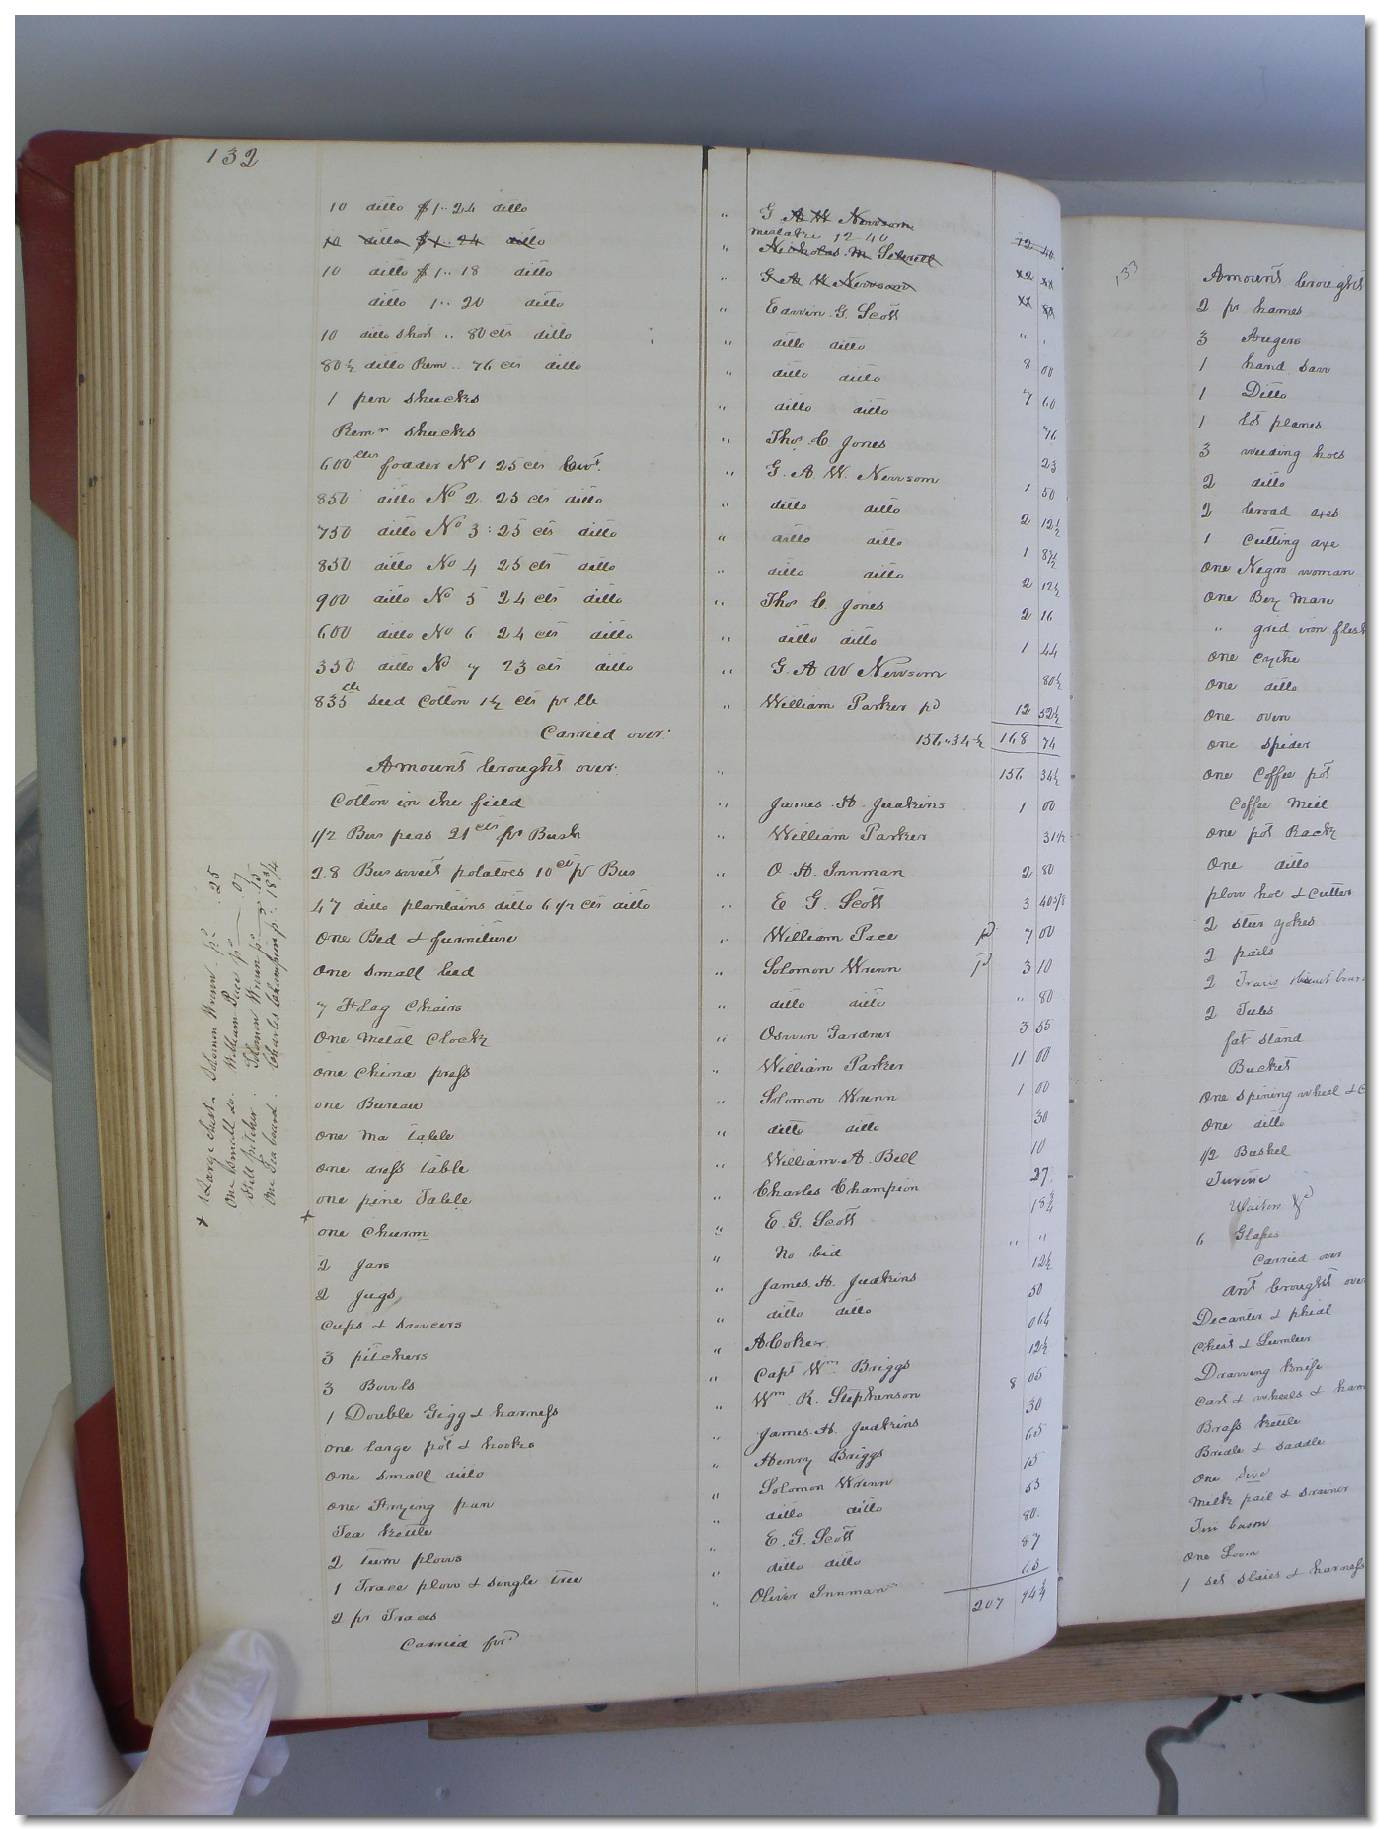 132
10 ditto $1..24 ditto " G A W Newsom
mistake 12 40
10 ditto $1..24 ditto " Nicholas M Sebrell 12 40
10 ditto $1..18 ditto " G A W Newsom
ditto 1..20 ditto " Edwin G. Scott
10 ditto short .. 80 cts ditto " ditto ditto 8 00
80½ ditto Rem .. 76 cts ditto " ditto ditto 7 60
1 pen shucks " ditto ditto 76
Remr shucks " Thos. C. Jones 23
600 lbs fodder No 1 25 cts Cwt. " G. A. W. Newsom 1 50
850 ditto No 2 25 cts ditto " ditto ditto 2 12½
750 ditto No 3 : 25 cts ditto " ditto ditto 1 87½
850 ditto No 4 25 cts ditto " ditto ditto 2 12½
900 ditto No 5 24 cts ditto " Thos C. Jones 2 16
600 ditto No 6 24 cts ditto " ditto ditto 1 44
350 ditto No 7 23 cts ditto " G. A W Newsom 80½
835 lb seed Cotton 1½ cts pr lb " William Parker pd 12 52½
Carried over. 156..34½ 168 74
Amount brought over. " 156 34½
Cotton in the field " James. H. Judkins 1 00
1/2 Bus peas 21 cts pr Bush " William Parker 31½
28 Bus sweet potatoes 10 cts pr Bus " O. H. Innman 2 80
47 ditto plantains ditto 6 1/2 cts ditto " E G. Scott 3 40 5/8
One Bed & furniture " William Pace pd 7 00
One small bed " Solomon Wrenn pd 3 10
7 Flag Chairs " ditto ditto " 80
One Metal Clock " Oswin Gardner 3 55
one China press " William Parker 11 00
one Bureau " Solomon Wrenn 1 00
One Ma table " ditto ditto 30
one dress table " William. A. Bell 10
one pine Table " Charles Champion 27
+ one Churm " E. G. Scott 18¾
2 Jars " No bid " "
2 Jugs " James. H. Judkins 12½
Cups & saucers " ditto ditto 50
3 pitchers " A Coker 06¼
3 Bowls " Capt Wm. Briggs 12½
1 Double Gigg & harness " Wm. R. Stephenson 8 05
one large pot & hooks " James. H. Judkins 30
One small ditto " Henry Briggs 65
One Frying pan " Solomon Wrenn 15
Tea kettle " ditto ditto 53
2 turn plows " E. G. Scott 80
1 Trace plow & single tree " ditto ditto 87
2 pr Traces " Oliver Innman
Carried for'd 207 94¼
+ 1 Large Chest. Solomon Wrenn pd .25
One Small do. William Pace pd .07
Still pitcher. Solomon Wrenn pd .15
One Tea board. Charles Champion pd. 18 3/4
133
Amount brought
2 pr hames
3 Augers
1 hand saw
1 Ditto
1 lot planes
3 weeding hoes
2 ditto
2 broad axes
1 Cutting axe
One Negro woman
One Boy Man
" grid iron flesh
One Cythe
One ditto
One oven
One spider
One Coffee pot
Coffee mill
One pot Rack
One ditto
plow hoe & Cutter
2 steer yokes
2 pails
2 Trays
2 Tubs
fat stand
Bucket
One spining wheel & C
One ditto
1/2 Bushel
Tureene
Waiters
6 Glasses
Carried over
amt brought over
Decanter & phial
Chest & Lumber
Drawing knife
Cart & wheels & ham
Brass kettle
Bridle & saddle
One
Milk pail & strainer
Tin bason
One Loom
1 set slaies & harness